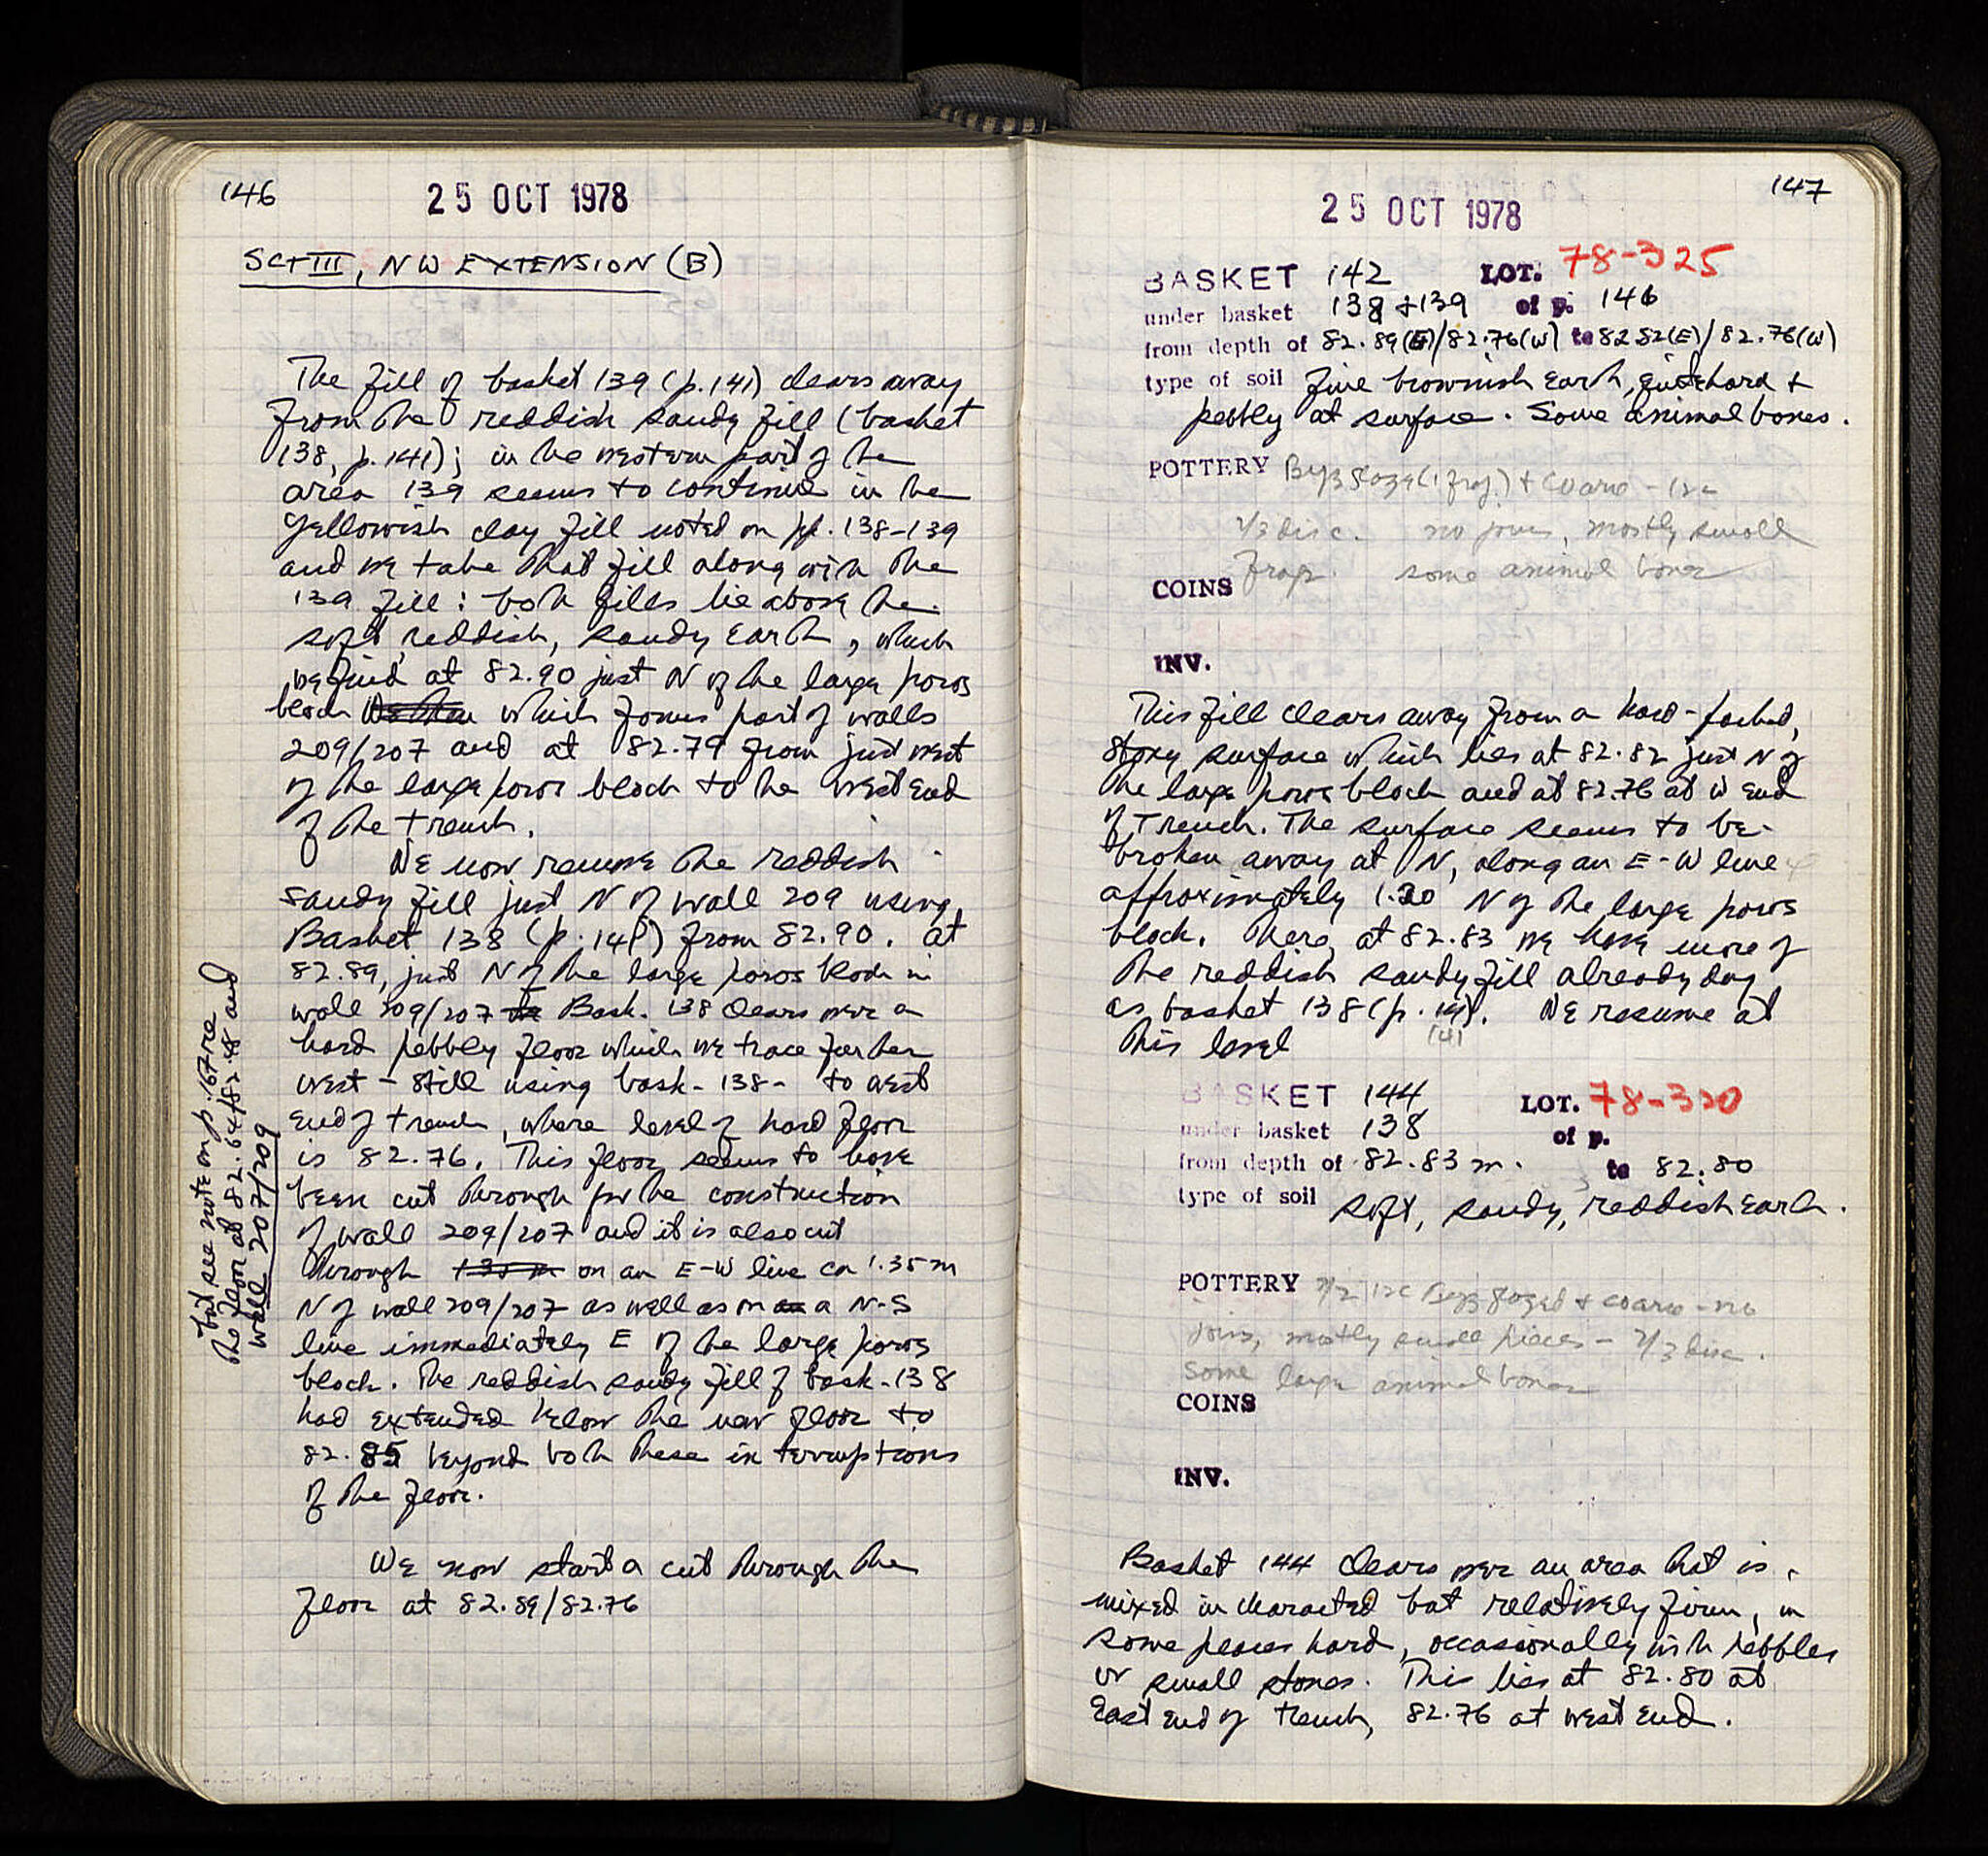 146
25 OCT 1978
SCT III, NW EXTENSION (B)
The fill of basket 139 (p. 141) clears away
from the reddish sandy fill (basket
138, p. 141); in the western part of the
area 139 seems to continue in the
yellowish clay fill noted on pp. 138-139
and we take that fill along with the
139 fill: both fills lie above the
soft, reddish, sandy earth, which
we find at 82.90 just N of the large poros
block which forms part of walls
209/207 and at 82.79 from just west
of the large poros block to the west end
of the trench.
We now remove the reddish
sandy fill just N of wall 209 using
Basket 138 (p. 141) from 82.90. at
82.89, just N of the large poros block in
wall 209/207 Bask. 138 clears over a
hard pebbly floor which we trace further
west - still using bask. 138 - to west
end of trench, where level of hard floor
is 82.76. This floor seems to have
been cut through for the construction
of wall 209/207 and it is also cut
through on an E-W line ca 1.35m
N of wall 209/207 as well as on a N-S
line immediately E of the large poros
block. The reddish sandy fill of bask. 138
had extended below the new floor to
82.85 beyond both these interruptions
of the floor.
We now start a cut through the
floor at 82.89/82.76
but see note on p. 167 re
the floor at 82.64/82.48 and
wall 207/209
147
25 OCT 1978
BASKET 142 LOT. 78-325
under basket 138 + 139 of p. 146
from depth of 82.89(E)/82.76(W) to 82.82(E)/82.76(W)
type of soil Fine brownish earth, quite hard +
pebbly at surface. Some animal bones.
POTTERY Byz glaze (1 frag.) + coarse - 12c
2/3 disc. no joins, mostly small
frags. some animal bones
COINS
INV.
This fill clears away from a hard-packed,
stony surface which lies at 82.82 just N of
the large poros block and at 82.76 at W end
of Trench. The surface seems to be
broken away at N, along an E-W line
approximately 1.20 N of the large poros
block. Here, at 82.83 we have more of
the reddish sandy fill already dug
as basket 138 (p. 141). We resume at
141
this level
BASKET 144 LOT. 78-320
under basket 138 of p.
from depth of 82.83 m. to 82.80
type of soil soft, sandy, reddish earth.
POTTERY 12c Byz glazed + coarse - no
joins, mostly small pieces - 2/3 disc.
Some large animal bones
COINS
INV.
Basket 144 clears over an area that is
mixed in character but relatively firm, in
some places hard, occasionally with pebbles
or small stones. This lies at 82.80 at
East end of trench, 82.76 at west end.